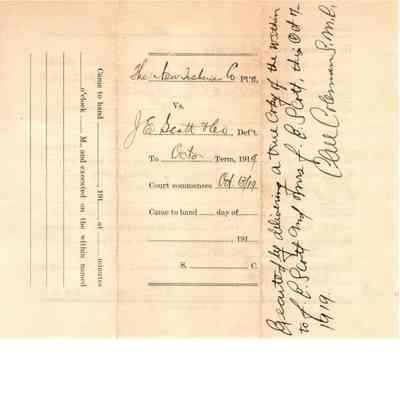 Came to hand 191 , at minutes
o'clock M., and executed on the within named
The Co Pl'ff.
Vs.
J E Scott & Co, Def't.
To Term, 1919
Court commences Oct. /19
Came to hand day of
, 191
S. C.
Executed by delivering a true Copy of the Within
to J. E. Scott and Mrs J. E. Scott, this Oct 7-
1919.
Coleman